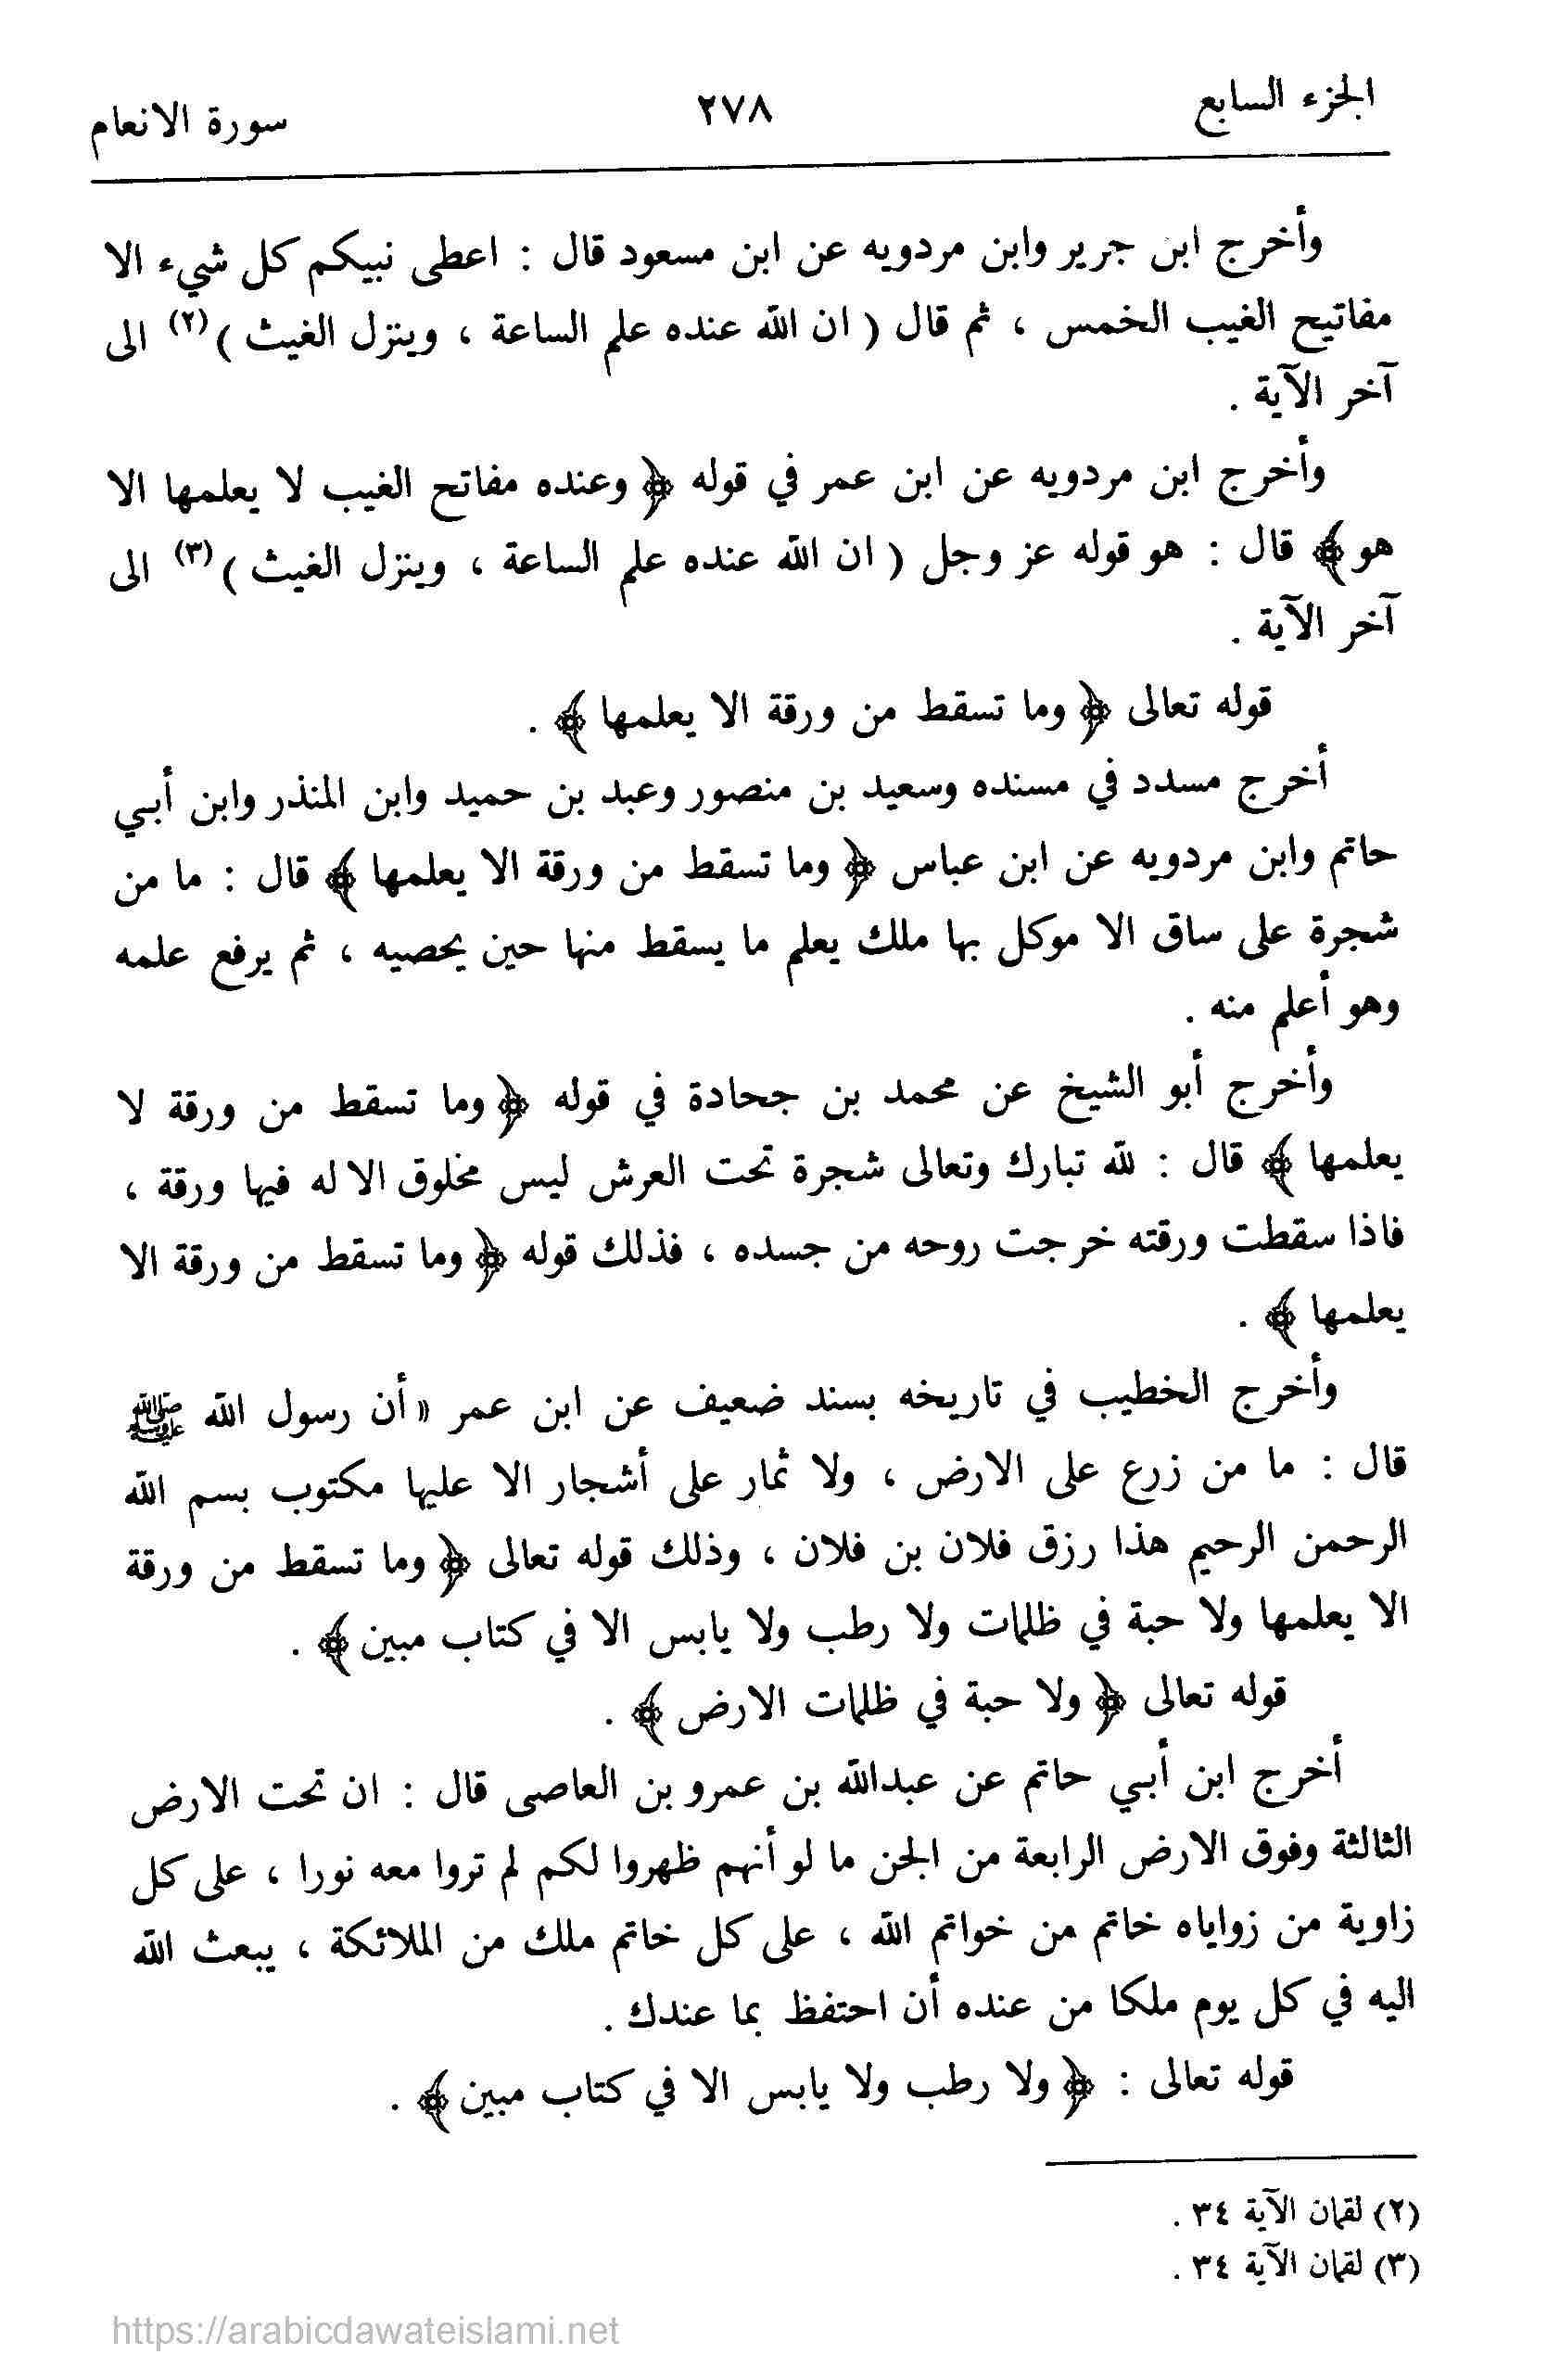 الجزء السابع ٢٧٨ سورة الانعام
وأخرج ابن جرير وابن مردويه عن ابن مسعود قال : اعطى نبيكم كل شيء الا
مفاتيح الغيب الخمس ، ثم قال ( ان الله عنده علم الساعة ، وينزل الغيث )(٢) الى
آخر الآية .
وأخرج ابن مردويه عن ابن عمر في قوله ﴿ وعنده مفاتح الغيب لا يعلمها الا
هو ﴾ قال : هو قوله عز وجل ( ان الله عنده علم الساعة ، وينزل الغيث )(٣) الى
آخر الآية .
قوله تعالى ﴿ وما تسقط من ورقة الا يعلمها ﴾ .
أخرج مسدد في مسنده وسعيد بن منصور وعبد بن حميد وابن المنذر وابن أبي
حاتم وابن مردويه عن ابن عباس ﴿ وما تسقط من ورقة الا يعلمها ﴾ قال : ما من
شجرة على ساق الا موكل بها ملك يعلم ما يسقط منها حين يحصيه ، ثم يرفع علمه
وهو أعلم منه .
وأخرج أبو الشيخ عن محمد بن جحادة في قوله ﴿ وما تسقط من ورقة لا
يعلمها ﴾ قال : لله تبارك وتعالى شجرة تحت العرش ليس مخلوق الا له فيها ورقة ،
فاذا سقطت ورقته خرجت روحه من جسده ، فذلك قوله ﴿ وما تسقط من ورقة الا
يعلمها ﴾ .
وأخرج الخطيب في تاريخه بسند ضعيف عن ابن عمر « أن رسول الله ﷺ
قال : ما من زرع على الارض ، ولا ثمار على أشجار الا عليها مكتوب بسم الله
الرحمن الرحيم هذا رزق فلان بن فلان ، وذلك قوله تعالى ﴿ وما تسقط من ورقة
الا يعلمها ولا حبة في ظلمات ولا رطب ولا يابس الا في كتاب مبين ﴾ .
قوله تعالى ﴿ ولا حبة في ظلمات الارض ﴾ .
أخرج ابن أبي حاتم عن عبدالله بن عمرو بن العاصى قال : ان تحت الارض
الثالثة وفوق الارض الرابعة من الجن ما لو أنهم ظهروا لكم لم تروا معه نورا ، على كل
زاوية من زواياه خاتم من خواتم الله ، على كل خاتم ملك من الملائكة ، يبعث الله
اليه في كل يوم ملكا من عنده أن احتفظ بما عندك .
قوله تعالى : ﴿ ولا رطب ولا يابس الا في كتاب مبين ﴾ .
(٢) لقمان الآية ٣٤ .
(٣) لقمان الآية ٣٤ .
https://arabicdawateislami.net